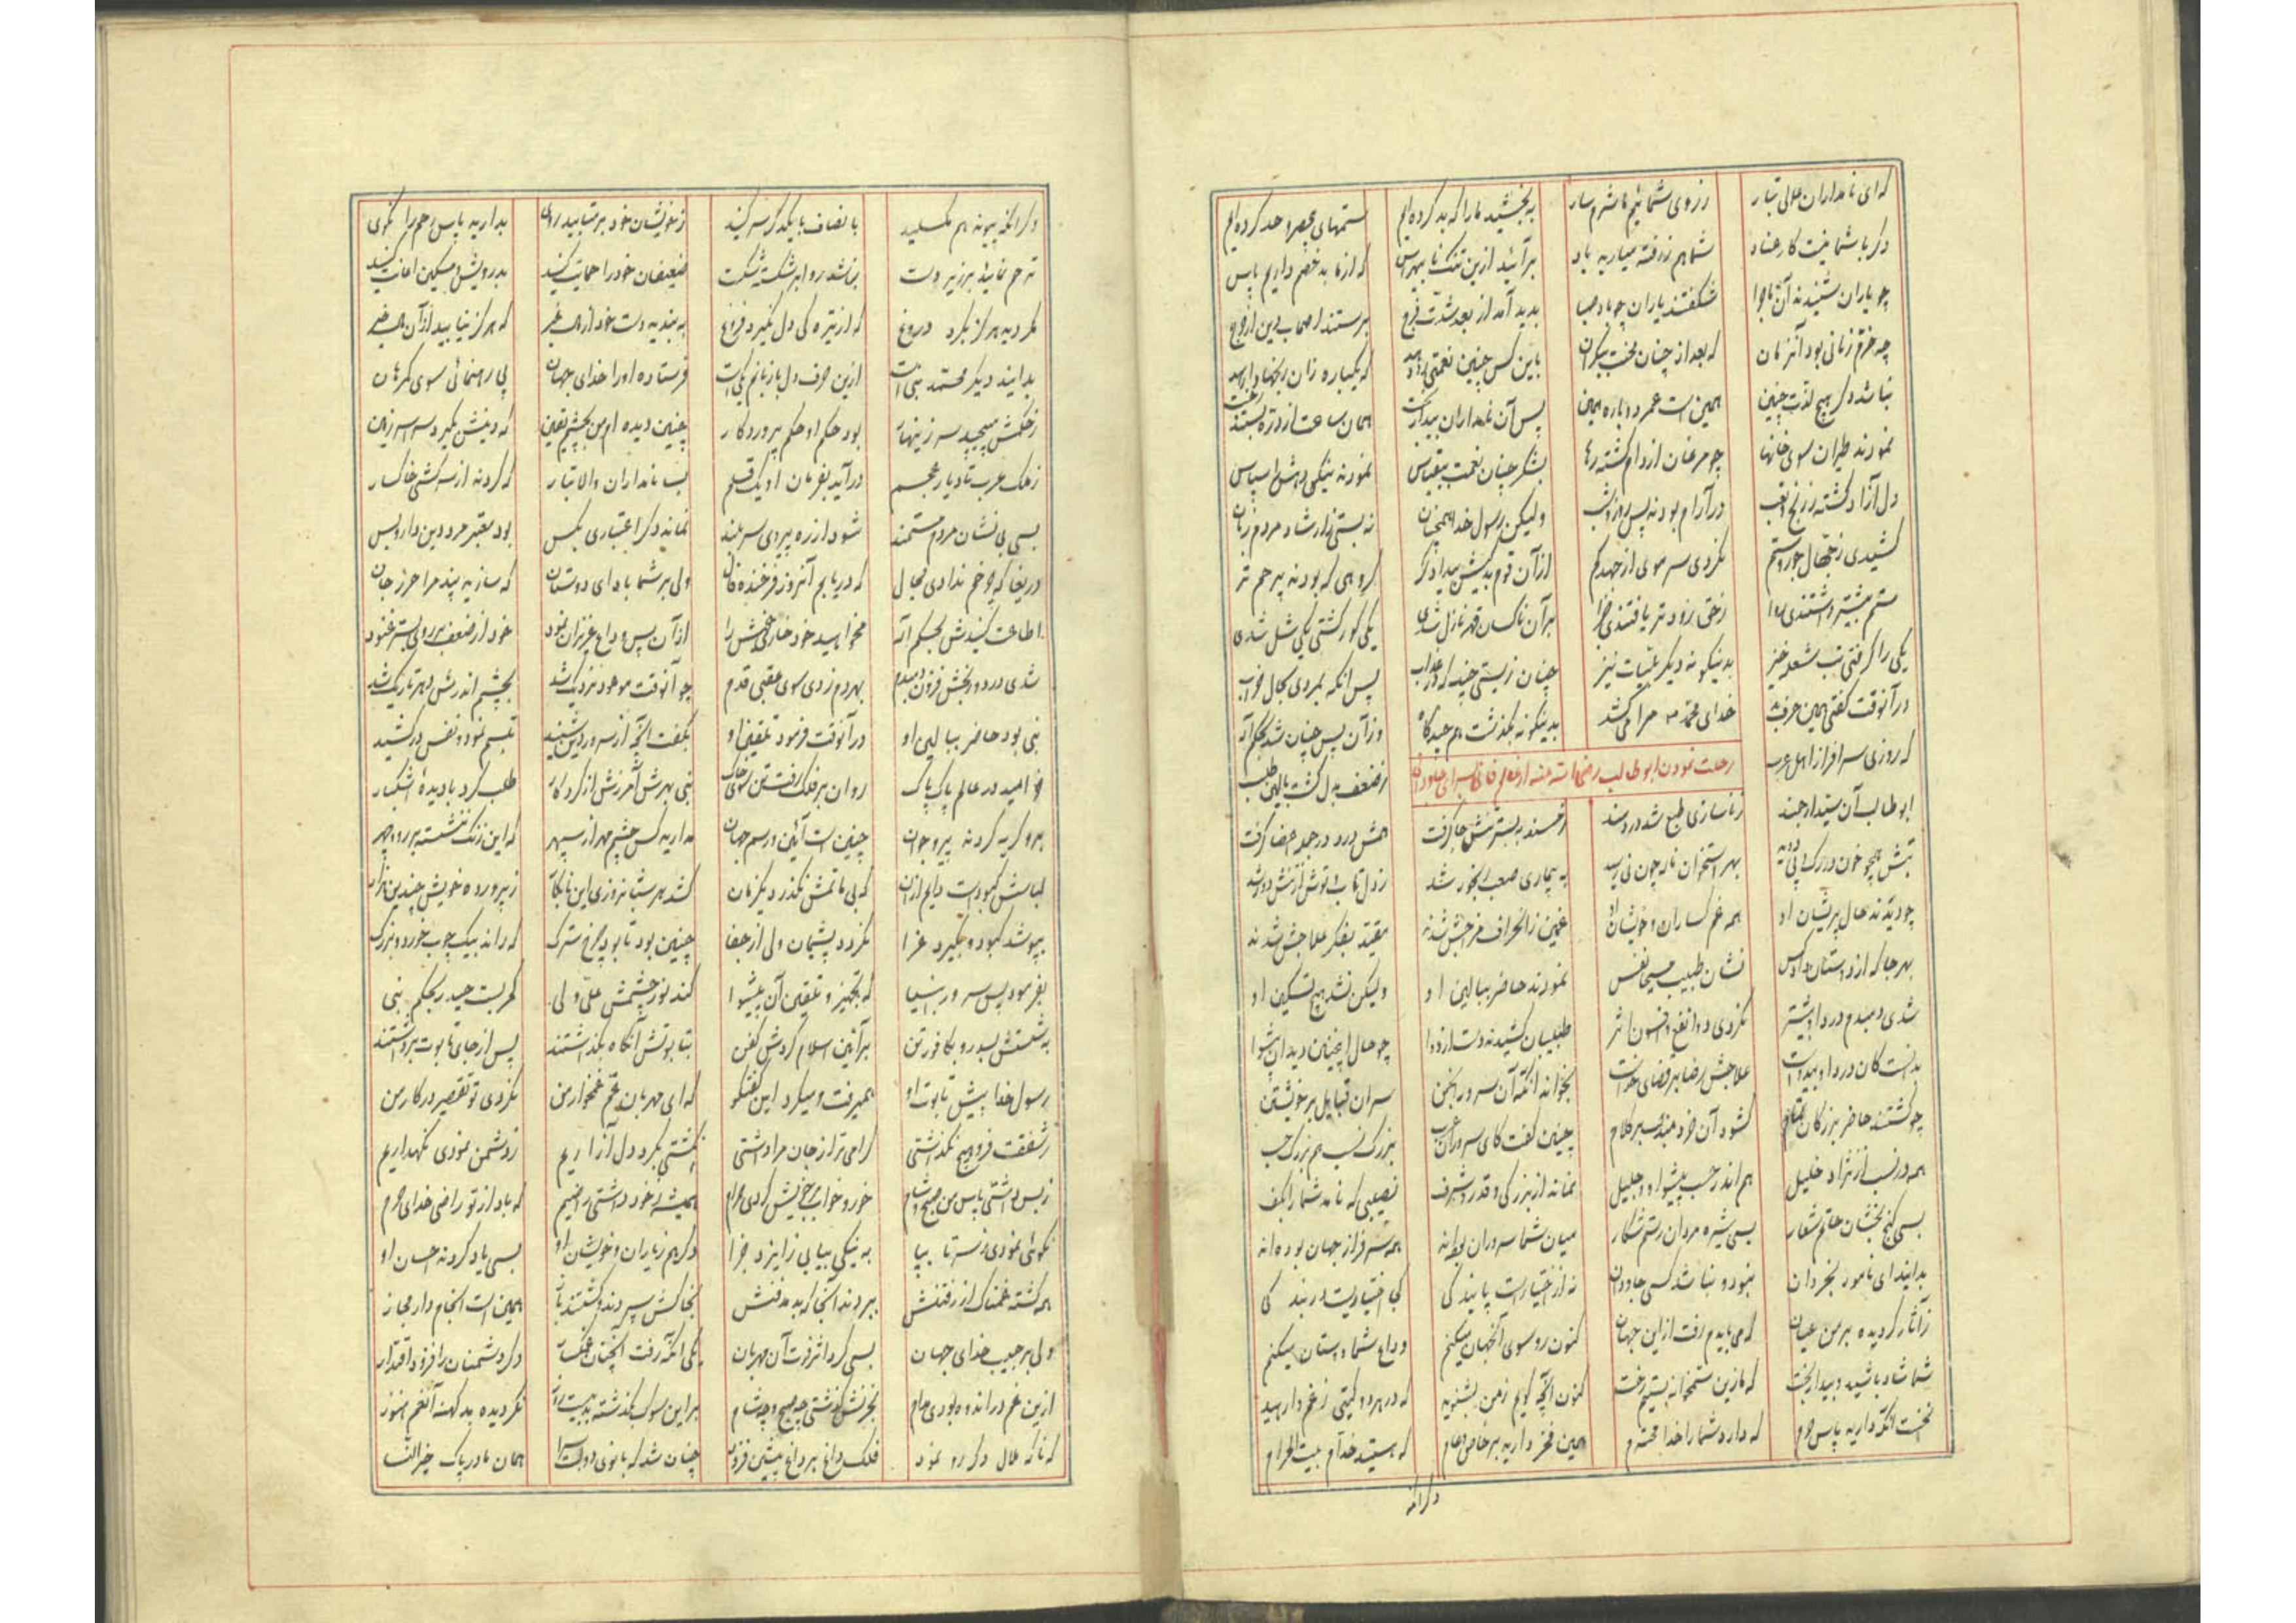 که ای نامداران عالی تبار ز روی شمائیم ما شرم سار به بخشید ما را که بد کرده ایم ستمهای بیحصر و حد کرده ایم
دگر با شما نیست کار عناد شما هم ز رفته میارید یاد برآئید ازین تنگنا بیهراس که از ما بد خصم داریم پاس
چو یاران شنیدند آن ماجرا شگفتند یاران چو باد صبا پدید آمد از بعد شدت فرج برستند اصحاب دین از حرج
چه خرم زمانی بود آنزمان که بعد از چنان بیکران باین کس چنین نعمتی که یکباره زان وارهد
نباشد دگر هیچ لذت چنین همین است عمر دوباره همین پس آن نامداران همان ساعت از دره بستند رخت
نمودند طیران سوی خانها چو مرغان از دام گشته رها بشکر چنان نعمت بیقیاس نمودند نیکی دهش را سپاس
دل آزاد گشته ز رنج و تعب در آرام بودند پس روز و شب ولیکن رسول خدا همچنان نه بستی ز ارشاد مردم زبان
کشیدی ز جهال جور و ستم نکردی سر موی از جهد کم از آن قوم بدکیش گروهی که بودند بیرحم تر
ستم بیشتر داشتندی روا ز حق زودتر یافتندی جزا بر آن ناکسان قهر نازل شدی یکی کور گشتی یکی شل شدی
یکی را گرفتی تب شعله خیز بدینگونه دیگر بلیات نیز چنان زیستی چند در عذاب پس آنکه بمردی بحال خراب
در آنوقت گفتی همین حرف خدای محمد مرا میکشد بدینگونه بگذشت هم چندگاه وز آن پس چنان شد بحکم اله
رحلت نمودن ابوطالب رضی الله عنه از عالم فانی بسرای جاودانی
که روزی سرافراز اهل عرب ز ضعف بدل گشت
ابوطالب آن سید ارجمند ز ناسازی طبع شد دردمند ز مسند به بستر تنش جا گرفت تنش درد در جمله اعضا گرفت
تبش همچو خون در رگ و پی دوید بهر استخوان ناله چون نی رسید به بیماری صعب رنجور شد ز دل تاب و توش از تنش دور شد
چو دیدند حال پریشان او همه غم گساران و خویشان او غمین ز انحراف مزاجش شدند مقید بفکر علاجش شدند
بهر جا که از دوستان داد کس نشان طبیب مسیحا نفس نمودند حاضر ببالین او ولیکن نشد هیچ تسکین او
شدی دمبدم درد او بیشتر نکردی دوا نفع و افسون اثر طبیبان کشیدند دست از دوا چو حال اینچنین دید آن پیشوا
بدانست کان درد او بیدواست علاجش رضا بر قضای خداست بخواند آنگه آن سرور انجمن سران قبایل بر خویشتن
چو گشتند حاضر بزرگان تمام گشود آن خردمند بر کلام چنین گفت کای سروران عرب بزرگ نسب هم بزرگ حسب
همه در نسب از نژاد خلیل هم اندر حسب پیشوا و جلیل نمانده از بزرگی و قدر و شرف نصیبی که نامد شما را بکف
بسی گنج بخشان حاتم شعار بسی شیر مردان رستم شکار میان شما سروران بوده اند همه سرفراز جهان بوده اند
بدانید ای نامور بخردان نبود و نباشد کسی جاودان نه از اختیار است پایندگی کی اختیاریست در بندگی
ز آثار گردیده بر من عیان که می بایدم رفت ازین جهان کنون رو سوی آنجهان میکنم وداع شما دوستان میکنم
شما شاد باشید و بیدار بخت که ما زین ستمخانه بستیم رخت کنون آنچه گویم ز من بشنوید که در هر دو گیتی ز غم وارهید
نخست آنکه دارید پاس حرم که دارد شما را خدا محترم همین فخر دارید بر خاص و عام که هستید خدام بیت الحرام
دگر آنکه
دگر آنکه پیوند هم مگسلید بانصاف با یکدگر سر کنید ز خویشان خود بر متابید روی بدارید پاس رحم را نکوی
ترحم نمائید بر زیر دست نباشد روا بر شکسته شکست ضعیفان خود را حمایت کنید بدرویش و مسکین اعانت کنید
مگردید هرگز بگرد دروغ که از تیرگی دل نگیرد فروغ به بندید دست خود از مال غیر که هرگز نیابید از آن مال خیر
بدانید دیگر محمد نبی است ازین حرف دل با زبانم یکیست فرستاده او را خدای جهان پی رهنمائی سوی گمرهان
ز حکمش مپیچید سر زینهار بود حکم او حکم پروردگار چنین دیده ام من بچشم یقین که دینش بگیرد سراسر زمین
ز ملک عرب تا دیار عجم درآید بفرمان او یک قلم بسا نامداران والا تبار که گردند از سرکشی خاکسار
بسی بی نشان مردم مستمند شود از ره پیروی سربلند نماند دگر اعتباری بکس بود معتبر مرد دین دار و بس
دریغا که چرخم ندادی مجال که دریابم آنروز فرخنده فال ولی بر شما باد ای دوستان که سازید پند مرا حرز جان
اطاعت کنیدش بحکم اله از آن پس وداع عزیزان نمود خود از ضعف بر روی بستر غنود
شدی درد و رنجش فزون دمبدم بهر دم زدی سوی عقبی قدم چو آنوقت موعود نزدیک شد بچشم اندرش دهر تاریک شد
نبی بود حاضر ببالین او در آنوقت فرمود تلقین او بگفت آنچه از سرور دین شنید تبسم نمود و نفس درکشید
خرامید در عالم پاک پاک روان بر فلک رفت تن سوی خاک نبی بهر آمرزش از کردگار طلب کرد با دیده اشکبار
برو گریه کردند پیر و جوان چنین است آئین و رسم جهان مدارید کس چشم مهر از سپهر که این
لباسش کبودست دایم ازان که بی ماتمش نگذرد یکزمان کشد هر شبانروزی این نابکار ز پرورده خویش چندین هزار
بپوشد کبود و بگیرد عزا نگردد پشیمان ولی از جفا چنین بود تا بود چرخ سترگ که راند بیک چوب خورد و بزرگ
بفرمود پس سرور انبیا که تجهیز و تلقین آن پیشوا کند نور چشمش علی ولی کمر بست حیدر بحکم نبی
به شستش بسدر و بکافور تن بر آئین اسلام کردش کفن بتابوتش آنگاه بگذاشتند پس از جای تابوت برداشتند
رسول خدا پیش تابوت او همیرفت و میکرد این گفتگو که ای مهربان عم غمخوار من نکردی تو تقصیر در کار من
ز شفقت فرو هیچ نگذاشتی گرامی تر از جان مرا داشتی نگشتی بگرد دل آزاریم ز دشمن نمودی نگهداریم
ز بس داشتی پاس من صبح و شام خور و خواب بر خویش کردی حرام همیشه ز خود داشتی راضیم که باد از تو راضی خدای حرم
نکوئی نمودی ز سر تا بپا به نیکی بیابی ز ایزد جزا دگر هم ز یاران و خویشان او بسی یاد کردند احسان او
همه گشته غمناک از رفتنش ببردند آنجا که بد مدفنش بخاکش سپردند و گشتند باز همین است انجام دار مجاز
ولی بر حبیب خدای جهان بسی کرد اثر فوت آن مهربان یکی آنکه رفت آنچنان دگر دشمنان را فزود اقتدار
ازین غم در اندوه بودی مدام بحزنش گذشتی چه صبح و چه شام بر این سوک بگذشته نگردیده بد کهنه آن غم هنوز
که ناگه ملال دگر رو نمود فلک داغ بر داغ پیشین فزود چنان شد که بانوی دولت سرا همان مادر پاک خیر النسا